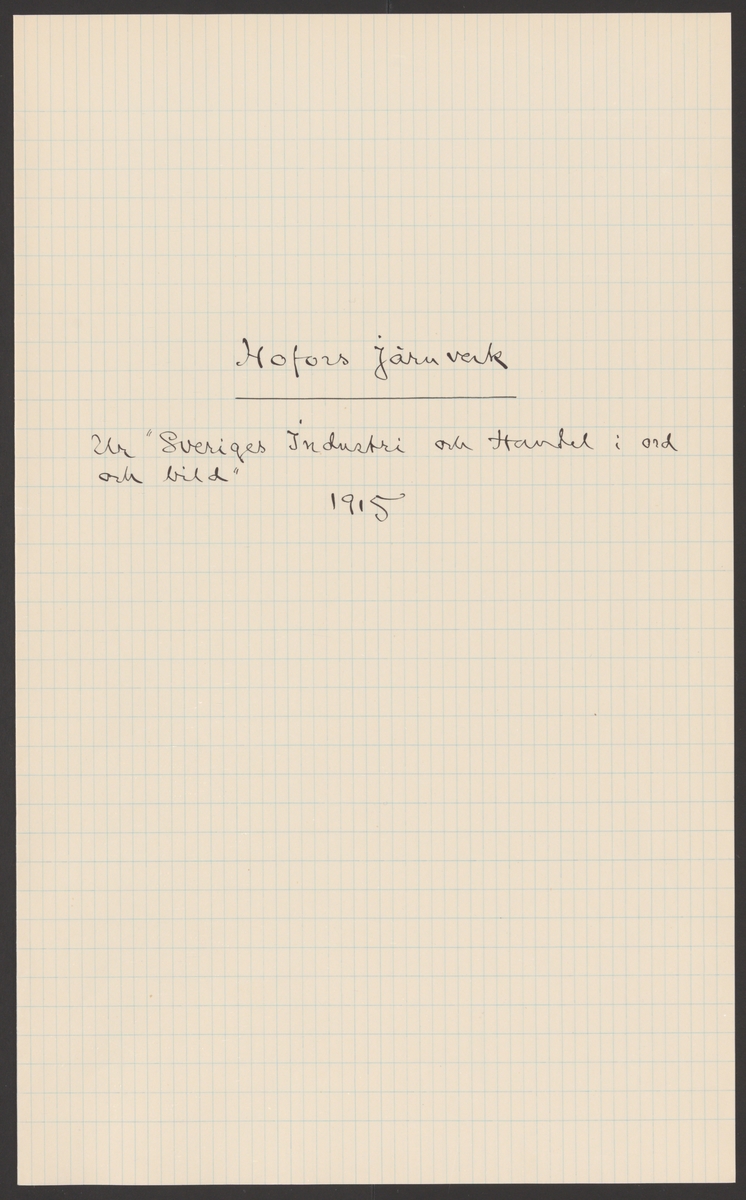 Hofors Järnverk
Ur "Sveriges Industri och Handel i ord
och bild"
1915